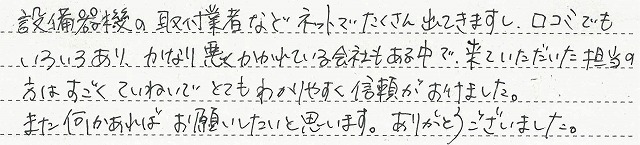 設備器機の取付業者などネットでたくさん出てきますし、口コミでも
いろいろあり、かなり悪くかかれている会社もある中で、来ていただいた担当の
方はすごくていねいでとてもわかりやすく信頼がおけました。
また何かあればお願いしたいと思います。ありがとうございました。